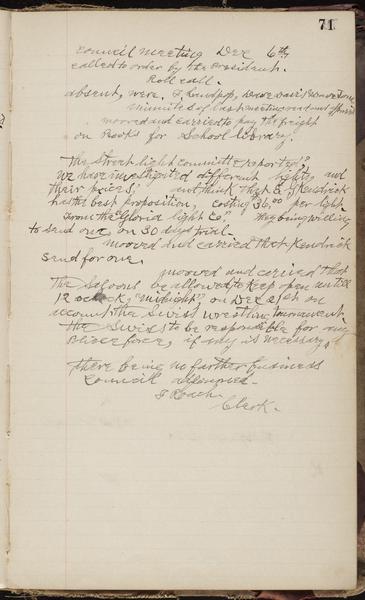 71
Council meeting Dec 6th
called to order by the President.
Roll call.
absent, were, F.
Minutes of last meeting read and approved
moved and carried to pay the freight
on Books for School library.
The Street light committee reported "
We have investigated different lights and
their prices, and think that E. J. Kendrick
has the best proposition, costing 36.00 per light
from the "Gloria light Co." they being willing
to send one on 30 days trial.
moved and carried that Kendrick
send for one.
moved and carried that
the Saloons be allowed to keep open untill
12 oclock, "midnight" on Dec 21st on
account the Swiss wrestling tournament.
the Swiss to be responsible for any
Police force, if any is necessary.
there being no further business
Council adjourned.
F Roach.
Clerk.